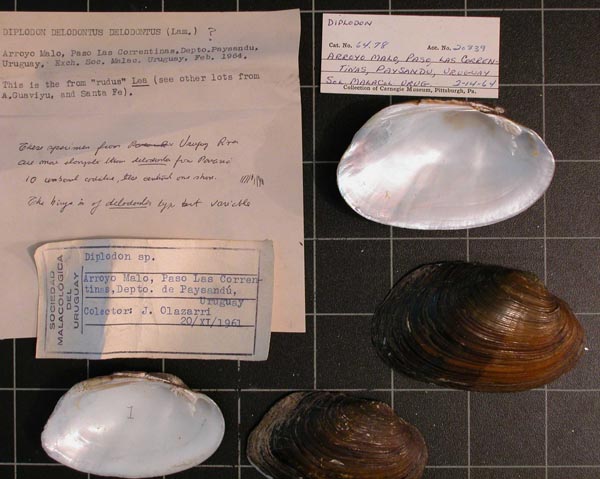 DIPLODON DELODONTUS DELODONTUS (Lam.) ?
Arroyo Malo, Paso Las Correntinas. Depto. Paysandu,
Uruguay, Exch. Soc. Malac. Uruguay, Feb. 1964.
This is the from "rudus" Lea (see other lots from
A.Guaviyu, and Santa Fe).
These specimens from Uruguay River
are more elongate than delodontus from Paraná
10
The hinge is of delodontus type but variable
DIPLODON
Cat. No. 64.78 Acc. No. 20739
ARROYO MALO, PASO LAS CORREN-
TINAS, PAYSANDU, URUGUAY
SOC. MALACOL. URUG. 2-14-64
Collection of Carnegie Museum, Pittsburgh, Pa.
SOCIEDAD
MALACOLÓGICA
DEL
URUGUAY
Diplodon sp.
Arroyo Malo, Paso Las Corren-
tinas,Depto. de Paysandú,
Uruguay
Colector: J. Olazarri
20/XI/1961
1